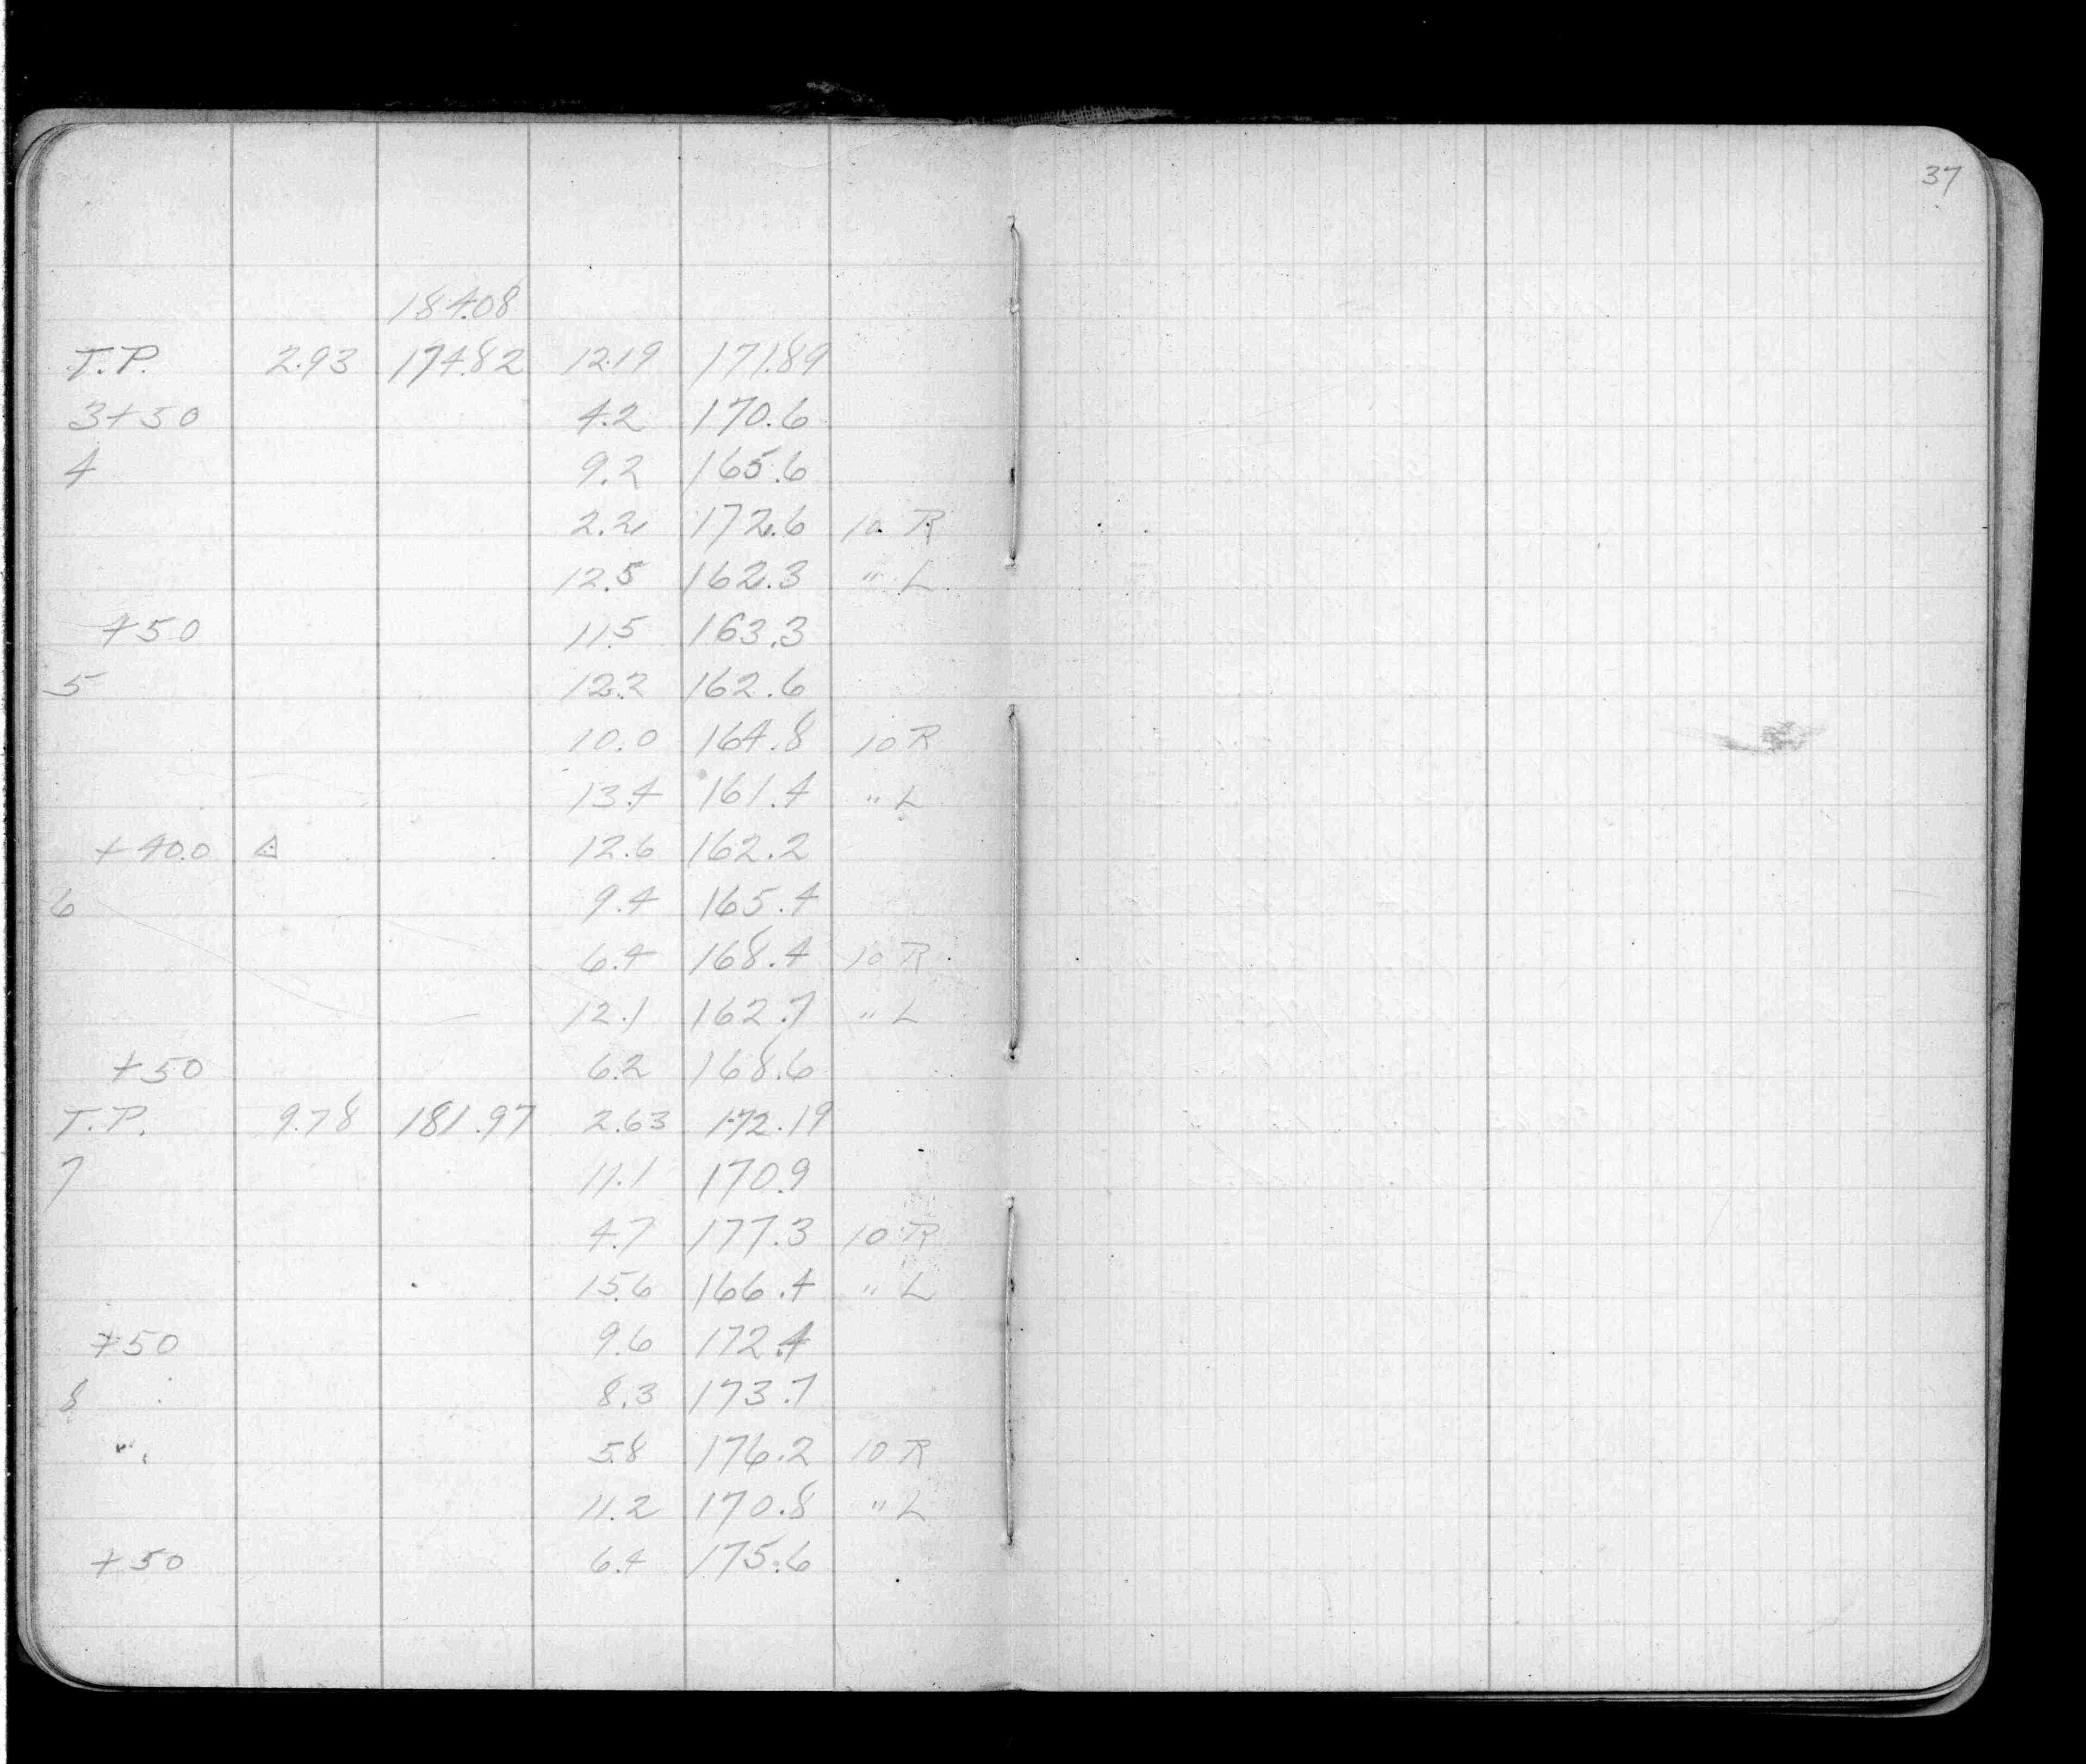 37
184.08
T.P. 2.93 174.82 12.19 171.89
3+50 4.2 170.6
4 9.2 165.6
2.2 172.6 10 R
12.5 162.3 " L
+50 11.5 163.3
5 12.2 162.6
10.0 164.8 10 R
13.4 161.4 " L
+40.0 △ 12.6 162.2
6 9.4 165.4
6.4 168.4 10 R
12.1 162.7 " L
+50 6.2 168.6
T.P. 9.78 181.97 2.63 172.19
7 11.1 170.9
4.7 177.3 10 R
15.6 166.4 " L
+50 9.6 172.4
8 8.3 173.7
" 5.8 176.2 10 R
11.2 170.8 " L
+50 6.4 175.6